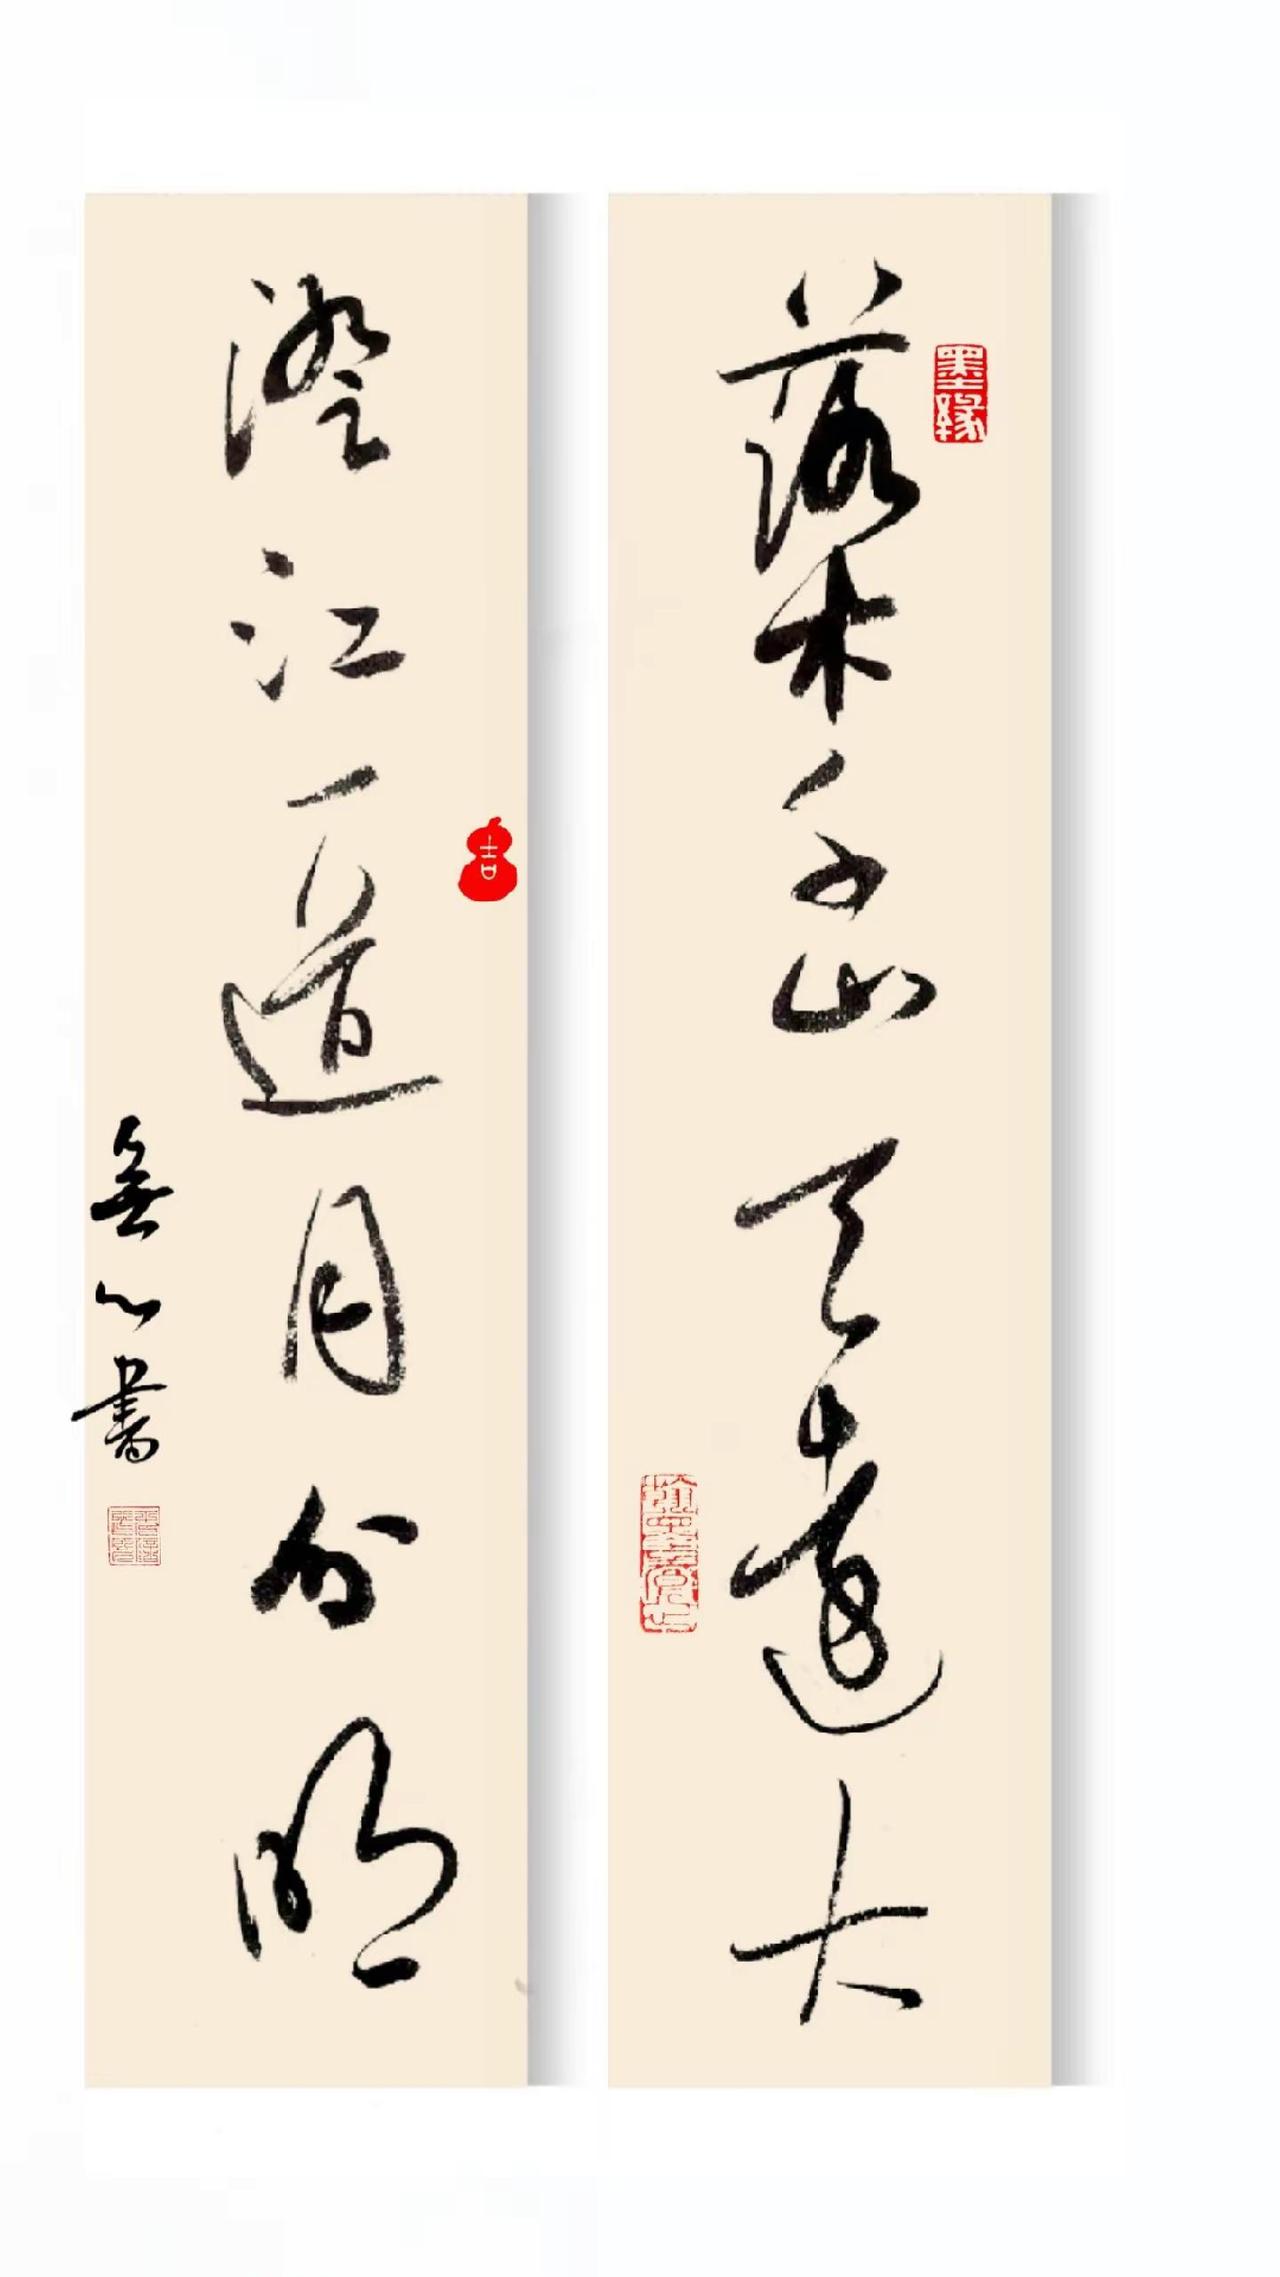 落木千山天遠大
澄江一道月分明
無心書
墨緣
吉